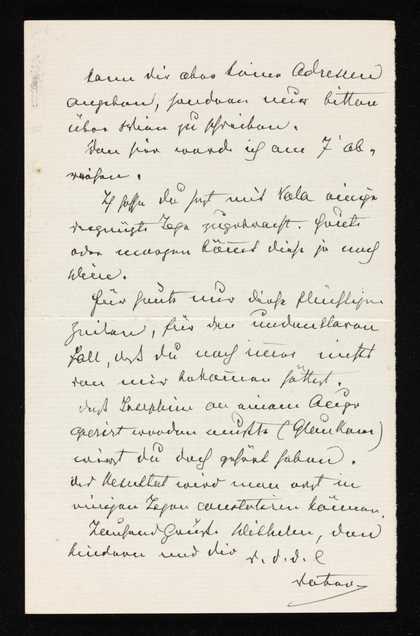 kann dir aber keine Adressen
angeben, sondern nur bitten
über Wien zu schreiben.
Von hier werde ich am 7t ab-
reisen.
Ich hoffe du hast mit einige
vergnügte Tage zugebracht. Heute
oder morgen kömmt diese ja nach
Wien.
Für heute nur diese flüchtigen
Zeilen, für den undenkbaren
Fall, daß du noch immer nichts
von mir bekommen hättest.
Daß Josephine an einem Auge
operirt worden mußte (Glaukom)
wirst du doch gehört haben.
Das Resultat wird man erst in
einigen Tagen constatiren können.
Tausend Grüße Wilhelm, den
Kindern und dir v. d. d. l